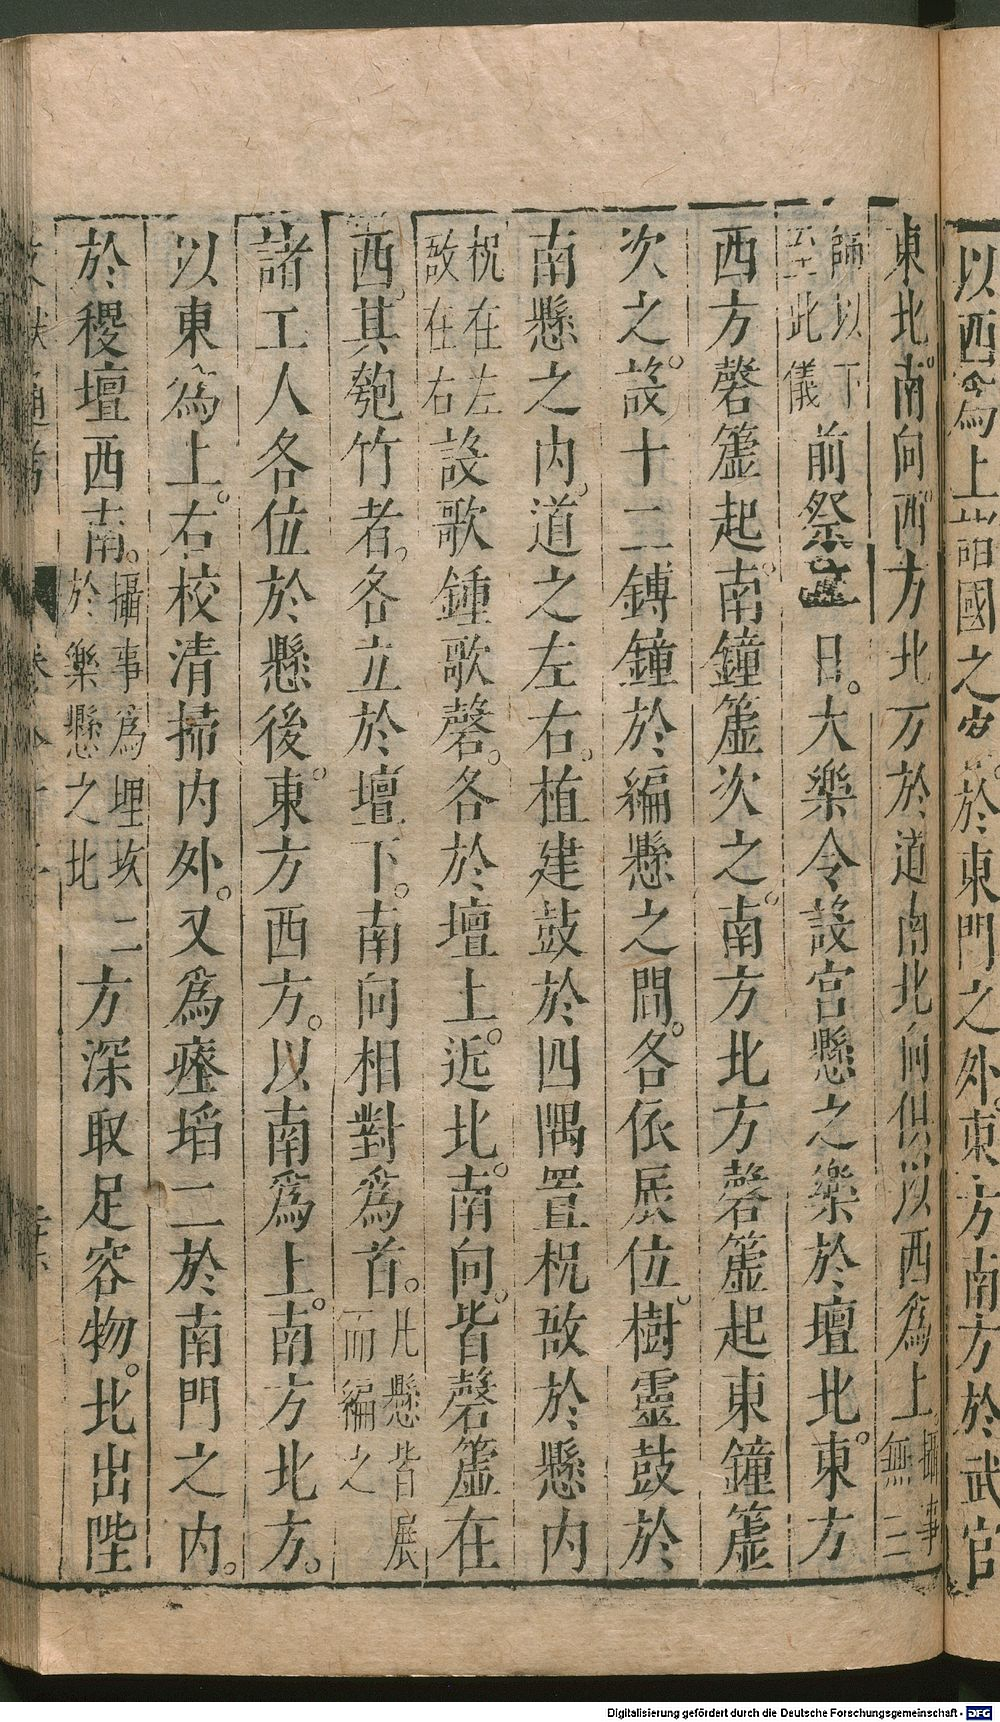 以西爲上諸國之客於東門之外東方南方於武官
東北南向西方北方於道南北向俱以西爲上攝事無三
師以下至此儀前祭二日。大樂令設宮懸之樂於壇北。東方
西方磬簴起南鐘簴次之。南方北方磬簴起東鐘簴
次之。設十二鎛鐘於編懸之間。各依辰位。樹靈鼓於
南懸之內。道之左右。植建鼓於四隅置柷敔於懸內
柷在左敔在右設歌鍾歌磬。各於壇上。近北。南向。皆磬簴在
西。其匏竹者。各立於壇下。南向相對爲首。凡懸皆展而編之
諸工人各位於懸後。東方西方。以南爲上。南方北方。
以東爲上。右校清掃內外。又爲瘞埳二於南門之內。
於稷壇西南。攝事爲埋坎於樂懸之北二方深取足容物。北出陛
Digitalisierung gefördert durch die Deutsche Forschungsgemeinschaft - DFG